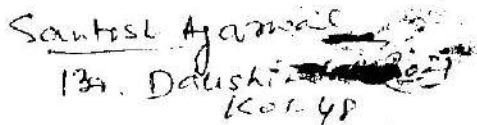 Santosh Agarwal
13A. Dakshin
Kol-48